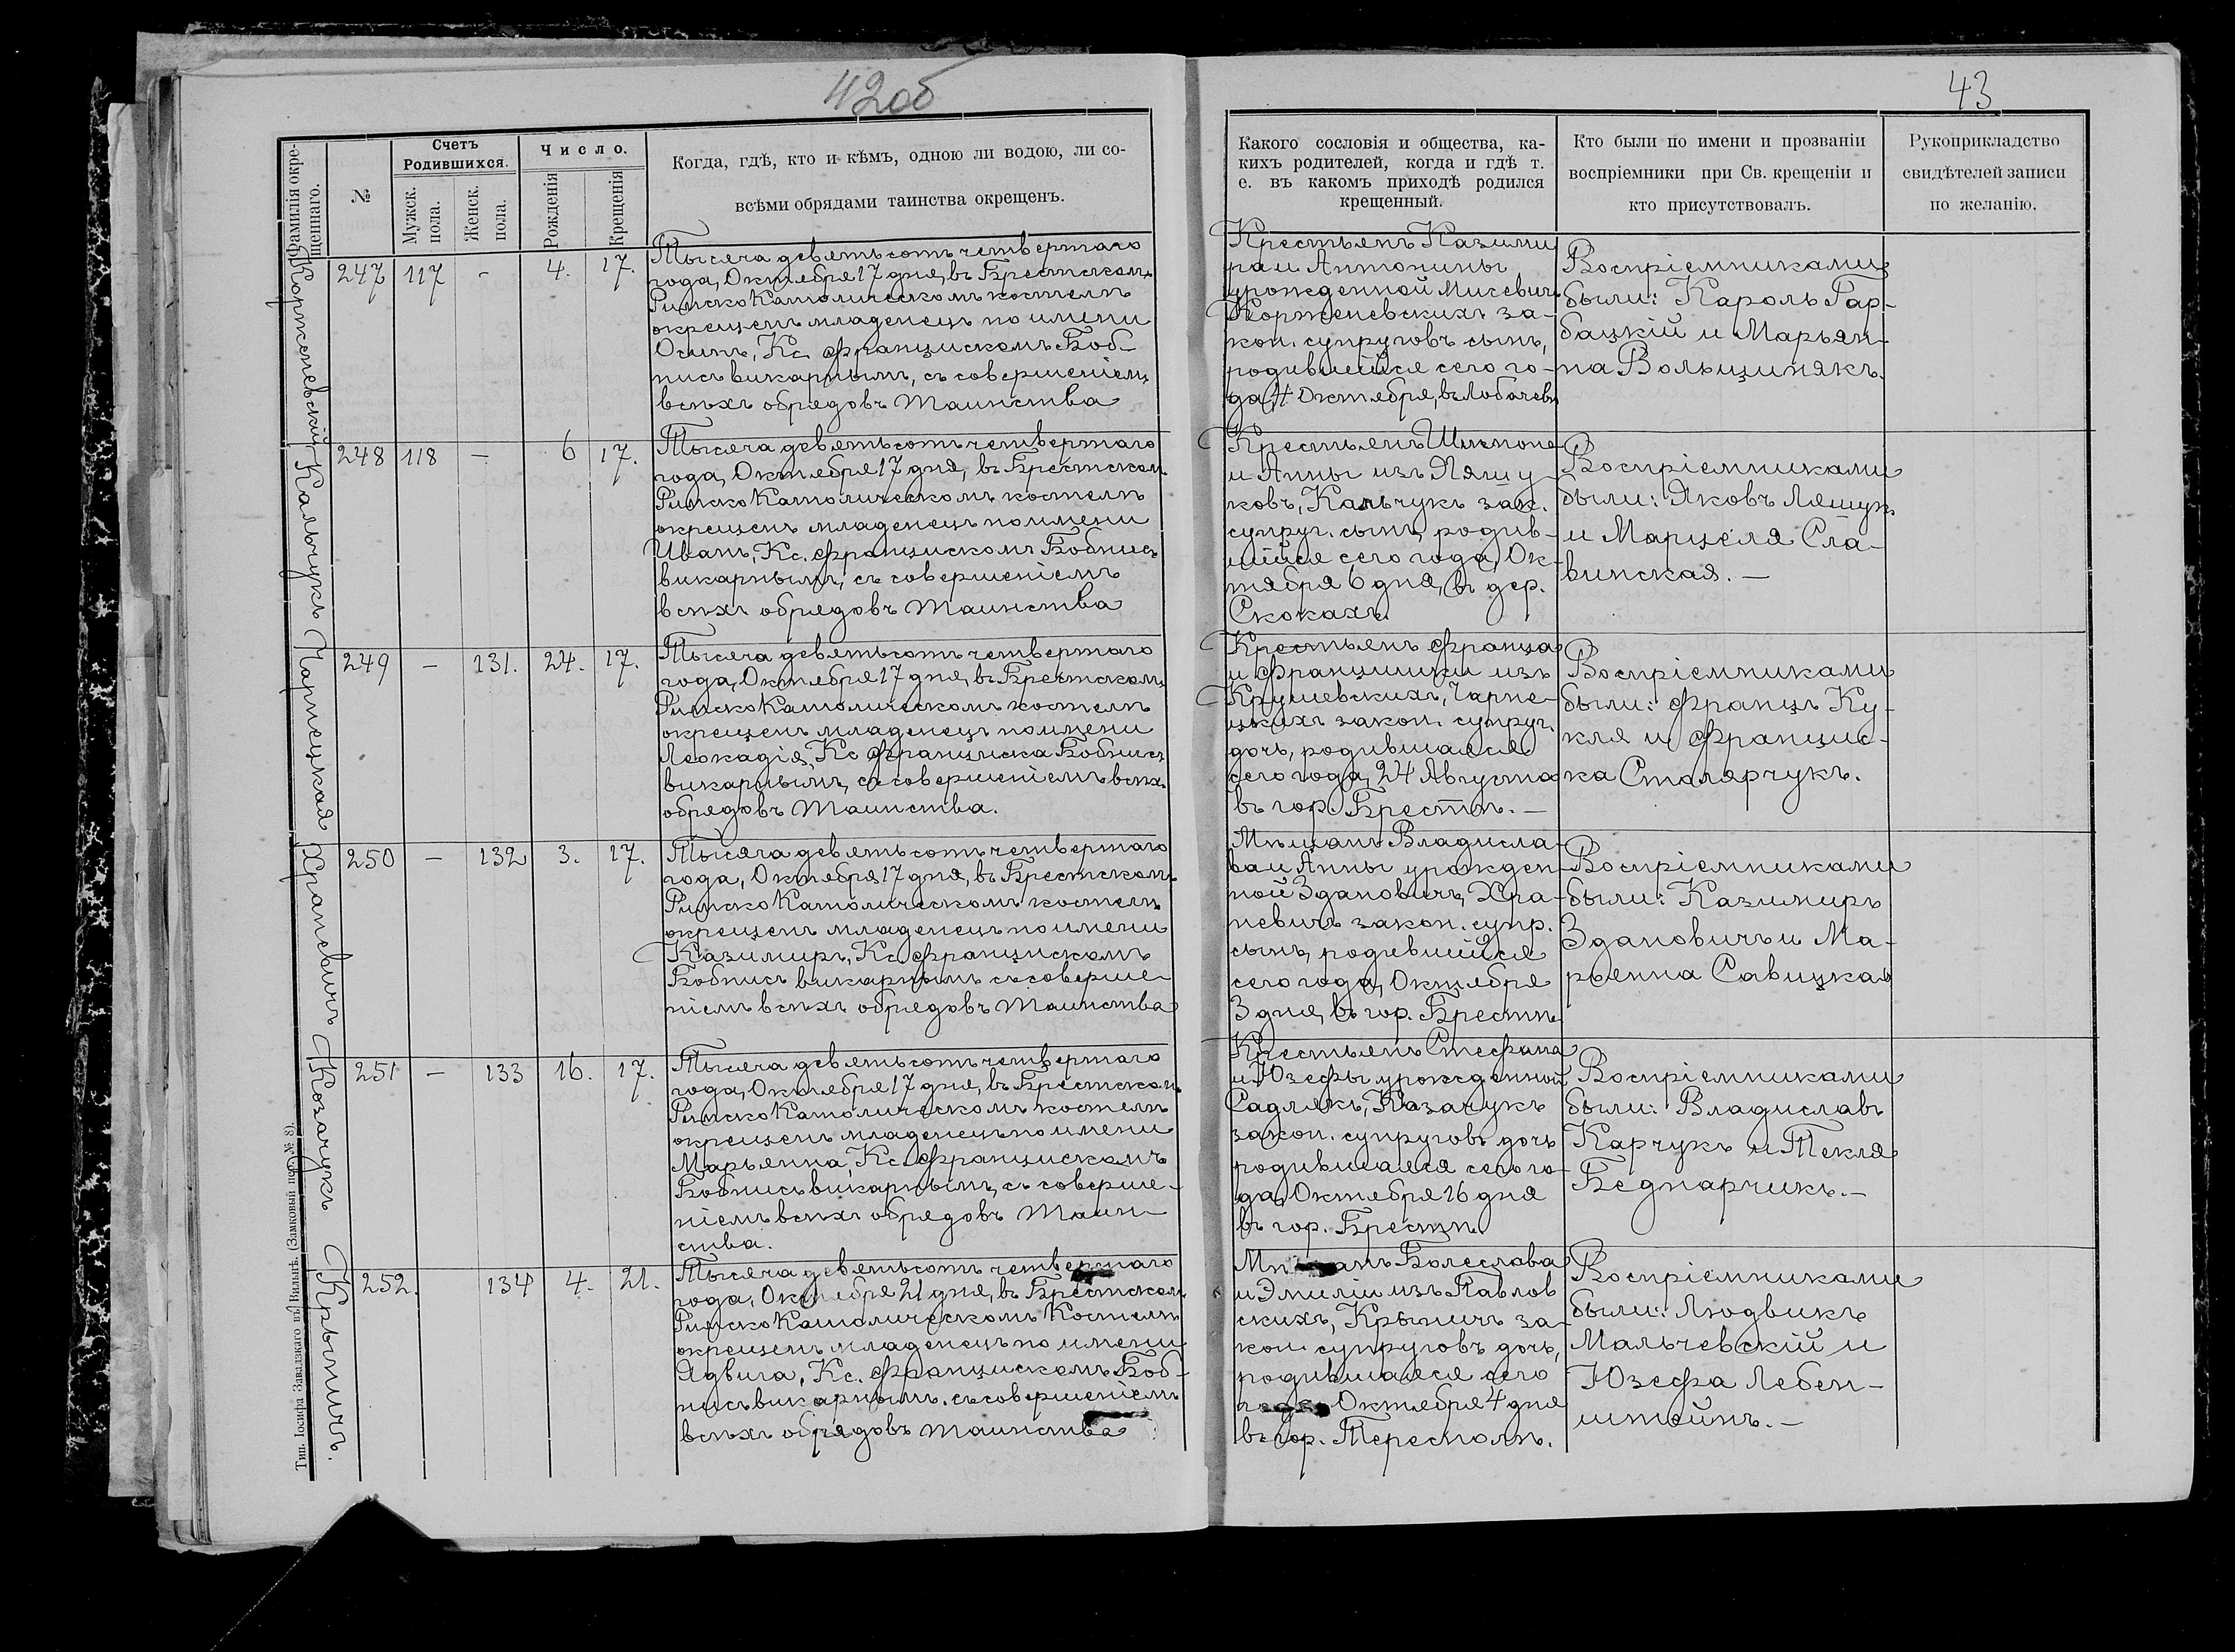 42об
43
Фамилія окре-
щеннаго.
№
Счетъ
Родившихся.
Мужск.
пола.
Женск.
пола.
Число.
Рожденія
Крещенія
Когда, гдѣ, кто и кѣмъ, одною ли водою, ли со-
всѣми обрядами таинства окрещенъ.
Какого сословія и общества, ка-
кихъ родителей, когда и гдѣ т.
е. въ какомъ приходѣ родился
крещенный.
Кто были по имени и прозваніи
воспріемники при Св. крещеніи и
кто присутствовалъ.
Рукоприкладство
свидѣтелей записи
по желанію.
Корженевскій
247 117 - 4. 17.
Тысяча девятьсотъ четвертаго
года, Октября 17 дня, въ Брестскомъ
Римско Католическомъ костелѣ
окрещенъ младенецъ по имени
Осипъ, Кс. Францискомъ Боб-
нисъ викарнымъ, съ совершеніемъ
всѣхъ обрядовъ Таинства
Крестьянъ Казими
ра и Антонины
урожденной Мисевичъ
Корженевскихъ за-
кон. супруговъ сынъ,
родившійся сего го-
да, 4 Октября, въ Лобачевѣ
Воспріемниками
были: Кароль Гар-
бацкій и Марьян-
на Вольщинякъ.
Кальчукъ
248 118 - 6 17.
Тысяча девятьсотъ четвертаго
года, Октября 17 дня, въ Брестскомъ
Римско Католическомъ костелѣ
окрещенъ младенецъ по имени
Иванъ, Кс. Францискомъ Бобнисъ
викарнымъ, съ совершеніемъ
всѣхъ обрядовъ Таинства
Крестьянъ Шимона
и Анны изъ Ляшу
ковъ, Кальчукъ зак.
супруг. сынъ, родив-
шійся сего года, Ок-
тября 6 дня, въ дер.
Скокахъ
Воспріемниками
были: Яковъ Ляшукъ
и Марцеля Сла-
винская. -
Чарнецкая
249 - 131. 24. 17.
Тысяча девятьсотъ четвертаго
года, Октября 17 дня, въ Брестскомъ
Римско Католическомъ костелѣ
окрещенъ младенецъ по имени
Леокадія, Кс Франциска Бобнисъ
викарнымъ, съ совершеніемъ всѣхъ
обрядовъ Таинства.
Крестьянъ Франца
и Францишки изъ
Крушевскихъ, Чарне-
цкихъ закон. супруг.
дочь, родившаяся
сего года, 24 Августа
въ гор. Брестѣ. -
Воспріемниками
были: Францъ Ку-
кля и Францис-
ка Столярчукъ.
Храпевичъ
250 - 132 3. 17.
Тысяча девятьсотъ четвертаго
года, Октября 17 дня, въ Брестскомъ
Римско Католическомъ костелѣ
окрещенъ младенецъ по имени
Казимиръ, Кс. Францискомъ
Бобнисъ викарнымъ съ соверше-
ніемъ всѣхъ обрядовъ Таинства
Мѣщанъ Владисла-
ва и Анны урожден-
ной Здановичъ, Хра-
певичъ закон. супр.
сынъ, родившійся
сего года, Октября
3 дня, въ гор. Брестѣ
Воспріемниками
были: Казимиръ
Здановичъ и Ма-
рьянна Савицкая
Козачукъ
251 - 133 16. 17.
Тысяча девятьсотъ четвертаго
года, Октября 17 дня, въ Брестскомъ
Римско Католическомъ костелѣ
окрещенъ младенецъ по имени
Марьянна, Кс. Францискомъ
Бобнисъ викарнымъ, съ соверше-
ніемъ всѣхъ обрядовъ Таин-
ства.
Крестьянъ Стефана
и Юзефы урожденной
Садлякъ, Казачукъ
закон. супруговъ дочь
родившаяся сего го-
да, Октября 16 дня
въ гор. Брестѣ
Воспріемниками
были: Владиславъ
Карчукъ и Текля
Беднарчикъ. -
Крыничъ.
252. 134 4. 21.
Тысяча девятьсотъ четвертаго
года, Октября 21 дня, въ Брестскомъ
Римско Католическомъ Костелѣ
окрещенъ младенецъ по имени
Ядвига, Кс. Францискомъ Боб-
нисъ викарнымъ. съ совершеніемъ
всѣхъ обрядовъ таинства
Мѣщанъ Болеслава
и Эмиліи изъ Павлов
скихъ, Крыничъ за-
кон. супруговъ дочь,
родившаяся сего
года Октября 4 дня
въ гор. Тересполѣ.
Воспріемниками
были: Людвикъ
Мальчевскій и
Юзефа Лебен-
штейнъ. -
Тип. Іосифа Завадзкаго въ Вильнѣ. (Замковый пер. № 8).